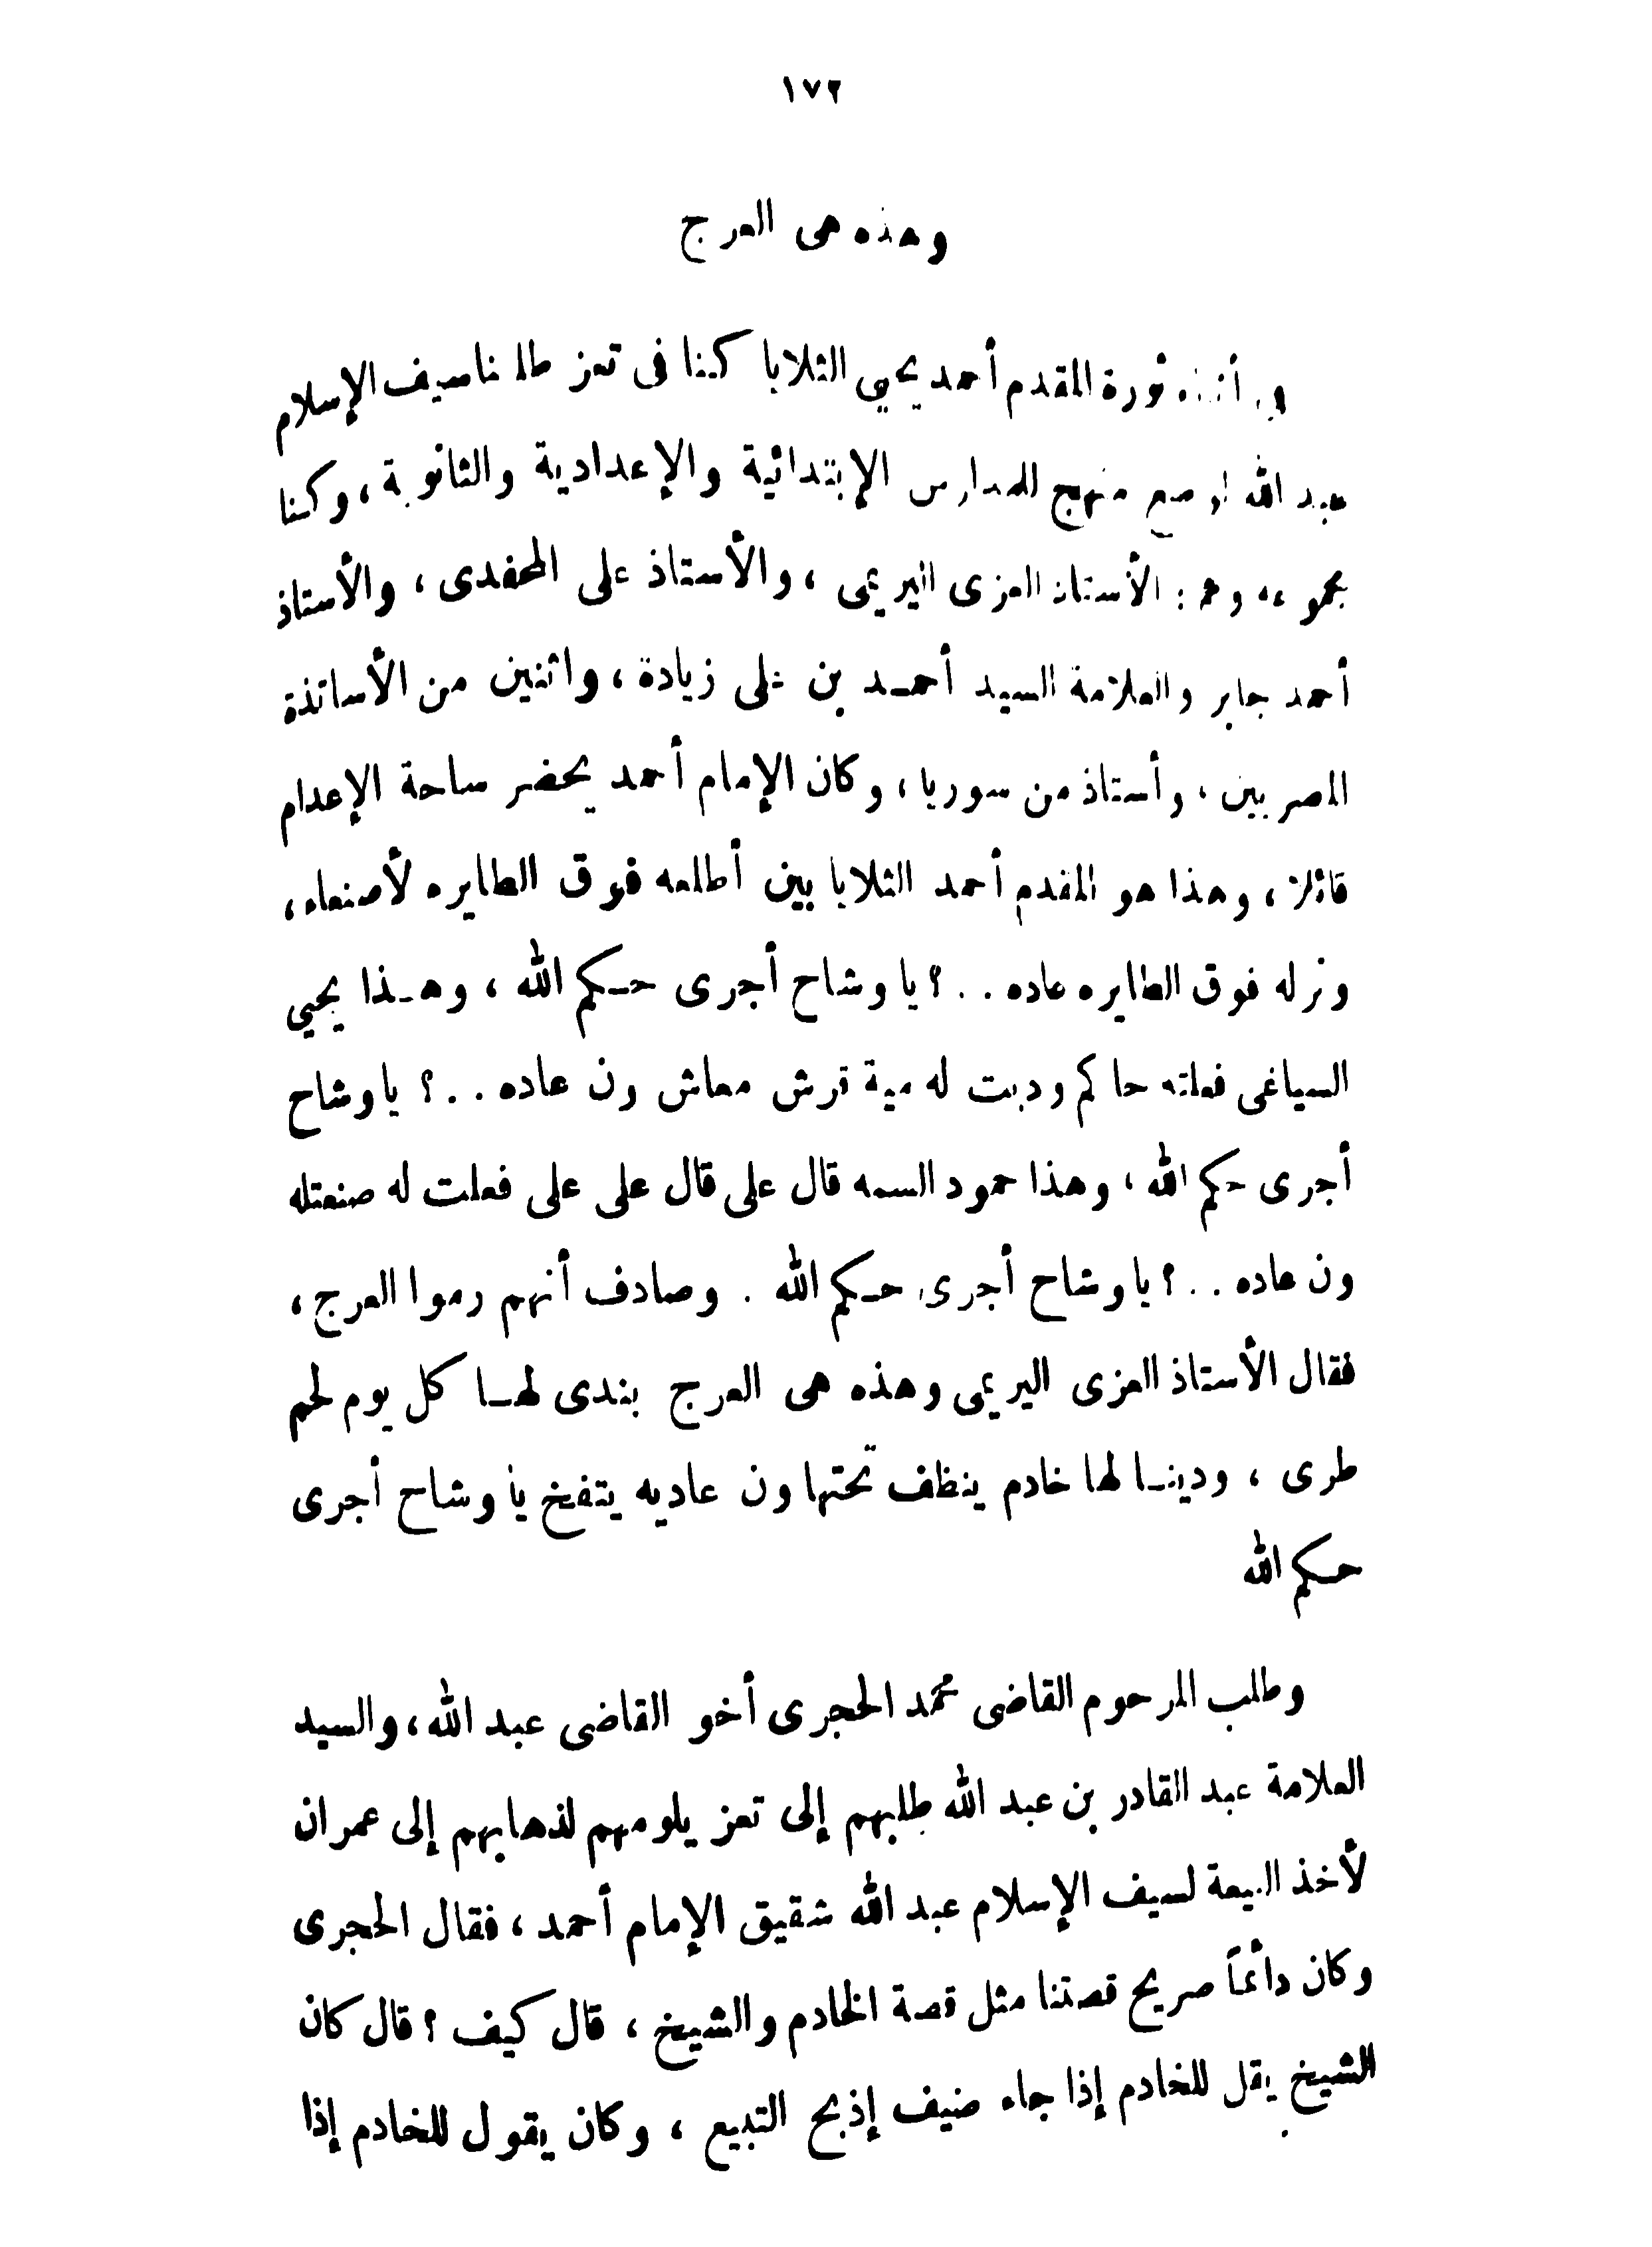 ١٧٢
وهذه هى العرج
وفى أثناء ثورة المقدم أحمد يحيى الثلايا كنا فى تعز طلبنا سيف الإسلام
عبد الله لوضع منهج للمدارس الإبتدائية والإعدادية والثانوية ، وكنا
مجموعه وهم : الأستاذ العزى اليريمى ، والأستاذ على المحفدى ، والأستاذ
أحمد جابر والعلامة السيد أحمد بن على زيادة ، واثنين من الأساتذة
المصريين ، وأستاذ من سوريا ، وكان الإمام أحمد يحضر ساحة الإعدام
قائلا ، وهذا هو المقدم أحمد الثلايا بين أطلعه فوق الطايره لأصنعاء ،
ونزله فوق الطايره عاده . . ؟ يا وشاح أجرى حكم الله ، وهذا يحيى
السياغى فعلته حاكم وديت له مية قرش معاش ون عاده . . ؟ ياوشاح
أجرى حكم الله ، وهذا حمود السمه قال على قال على على فعلت له صنعتله
ون عاده . . ؟ ياوشاح أجرى حكم الله . وصادف أنهم رموا العرج ،
فقال الأستاذ العزى اليريمى وهذه هى العرج بندى لها كل يوم لحم
طرى ، ودينا لها خادم ينظف تحتها ون عاديه يتفخ يا وشاح أجرى
حكم الله
وطلب المرحوم القاضى محمد الحجرى أخو القاضى عبد الله ، والسيد
العلامة عبد القادر بن عبد الله طلبهم إلى تعز يلومهم لذهابهم إلى عمران
لأخذ البيعة لسيف الإسلام عبد الله شقيق الإمام أحمد ، فقال الحجرى
وكان دائماً صريح قصتنا مثل قصة الخادم والشيخ ، قال كيف ؟ قال كان
الشيخ يقل للخادم إذا جاء ضيف إذبح التبيع ، وكان يقول للخادم إذا